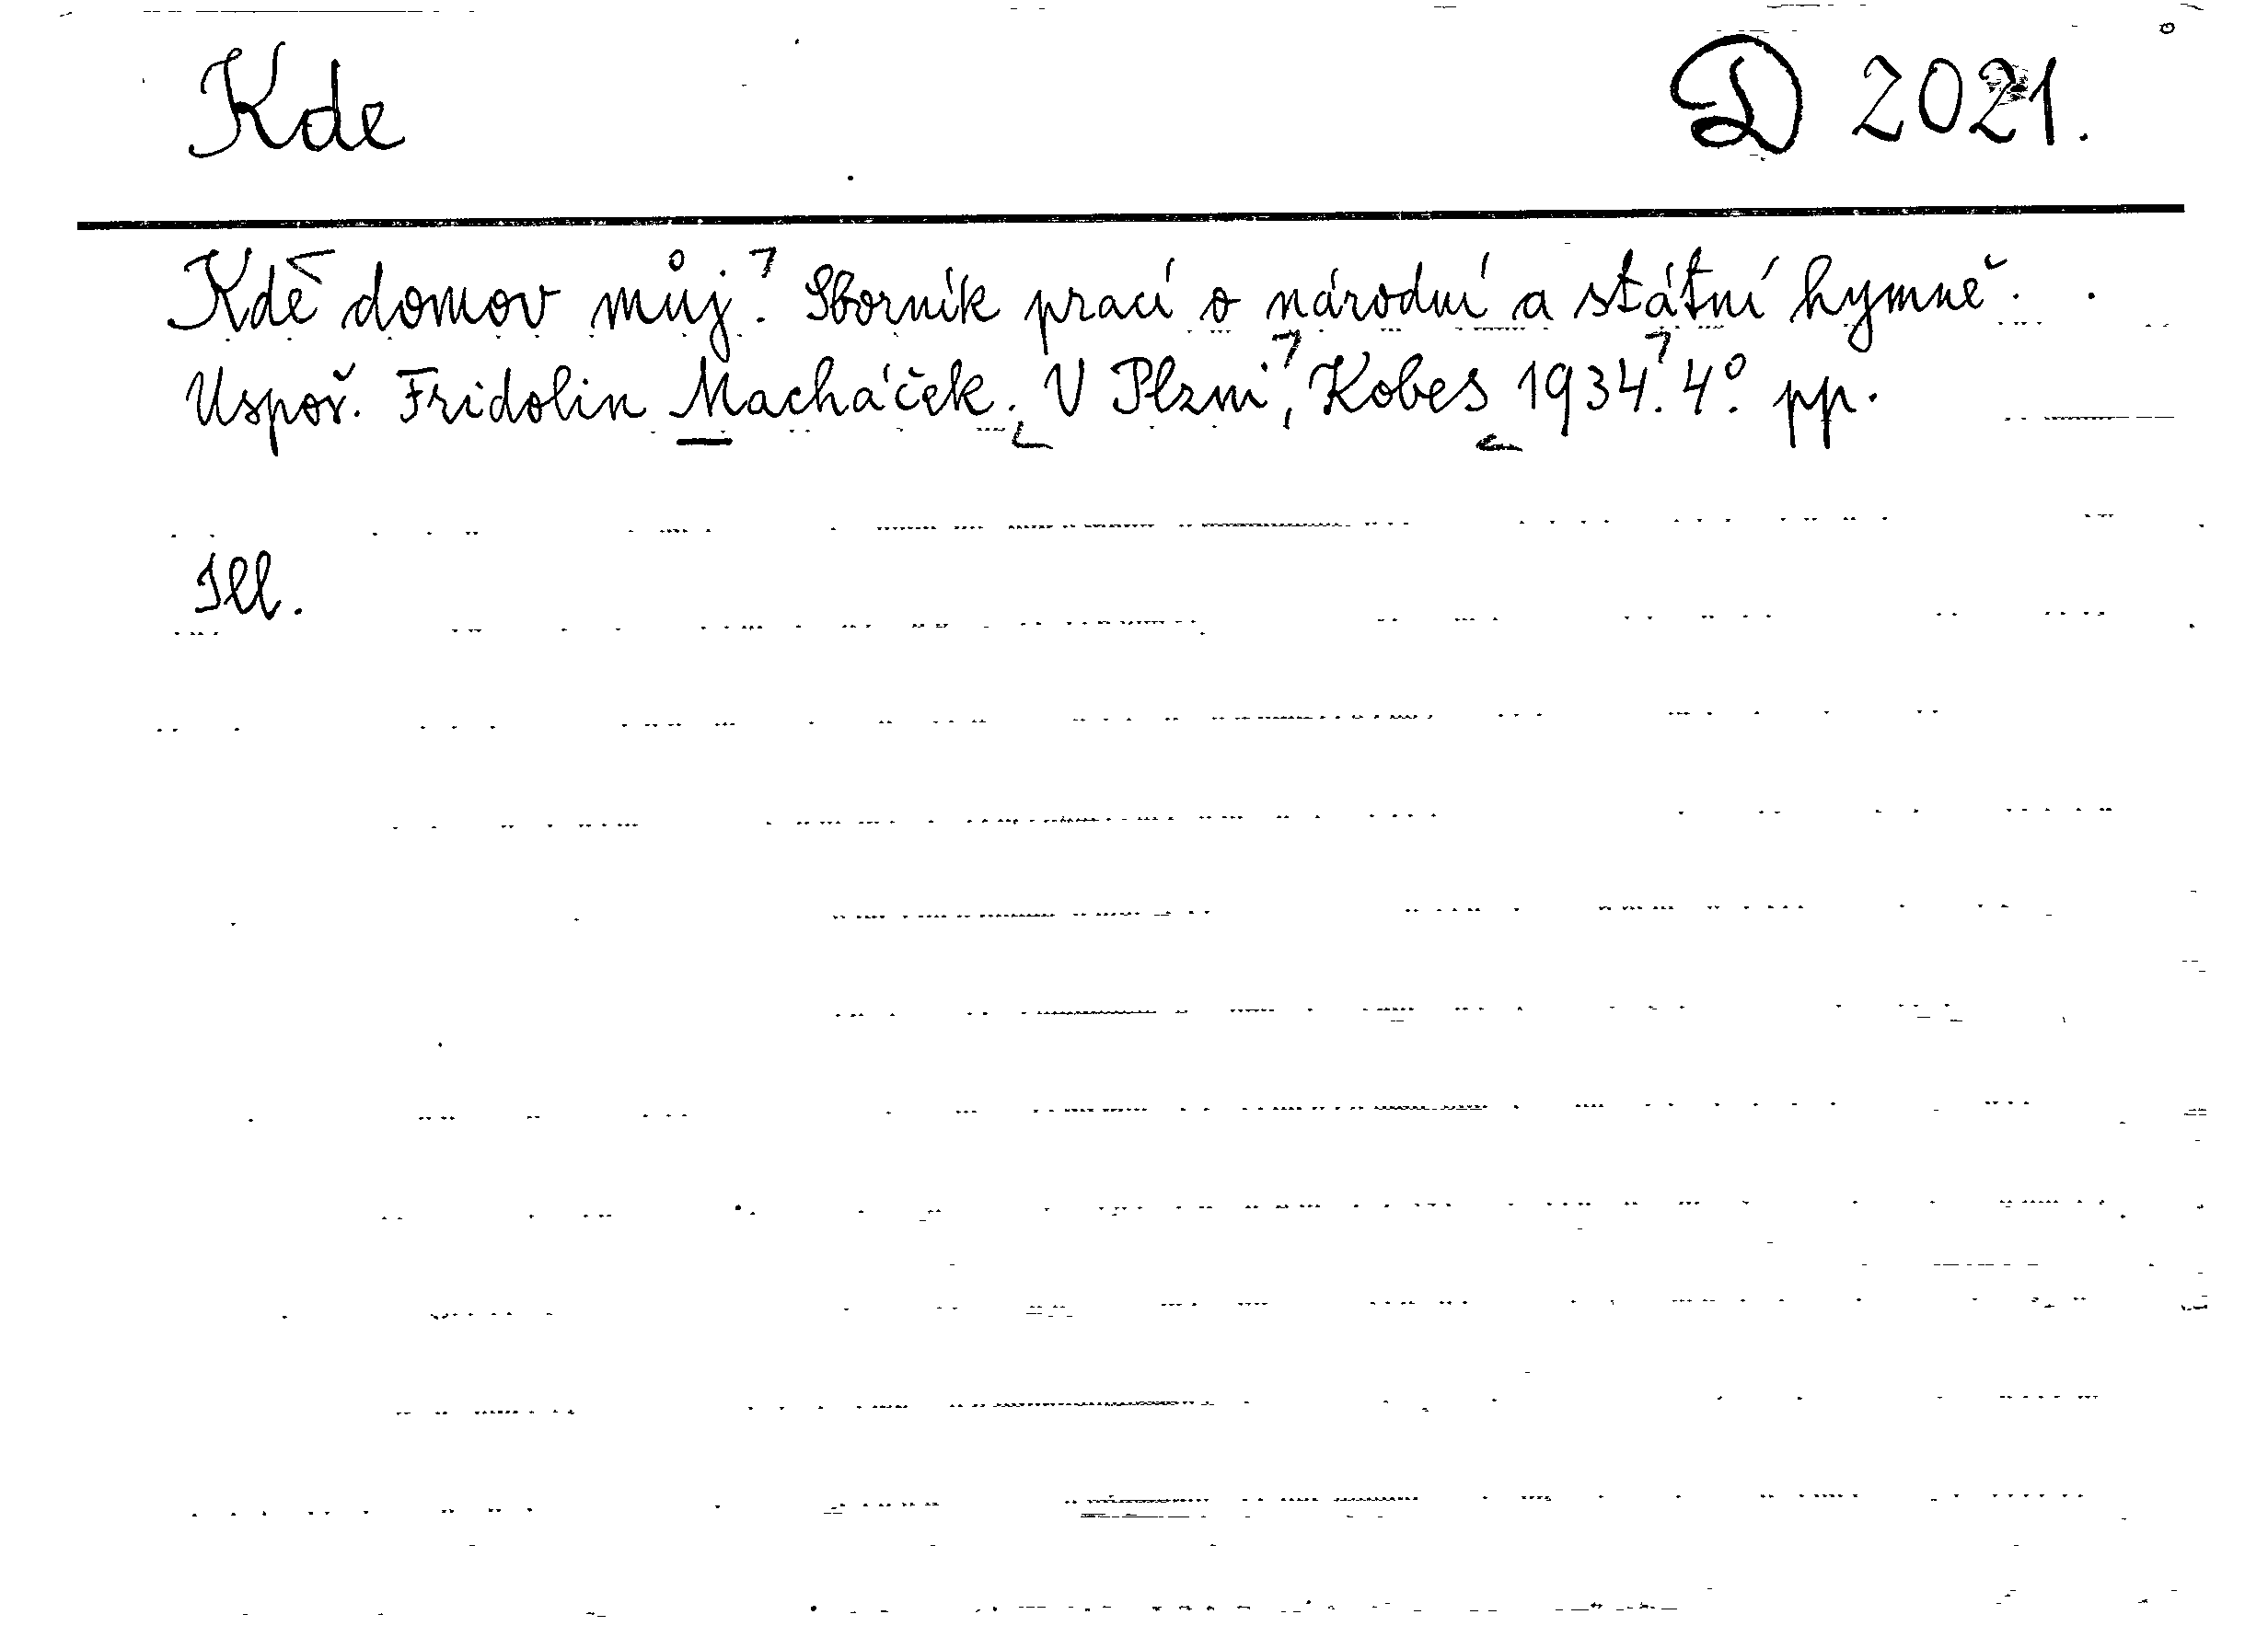 Kde D 2021.
Kde domov můj? Sborník prací o národní a státní hymně.
Uspoř. Fridolin Macháček. V Plzni, Kobes 1934. 4º. pp.
Ill.